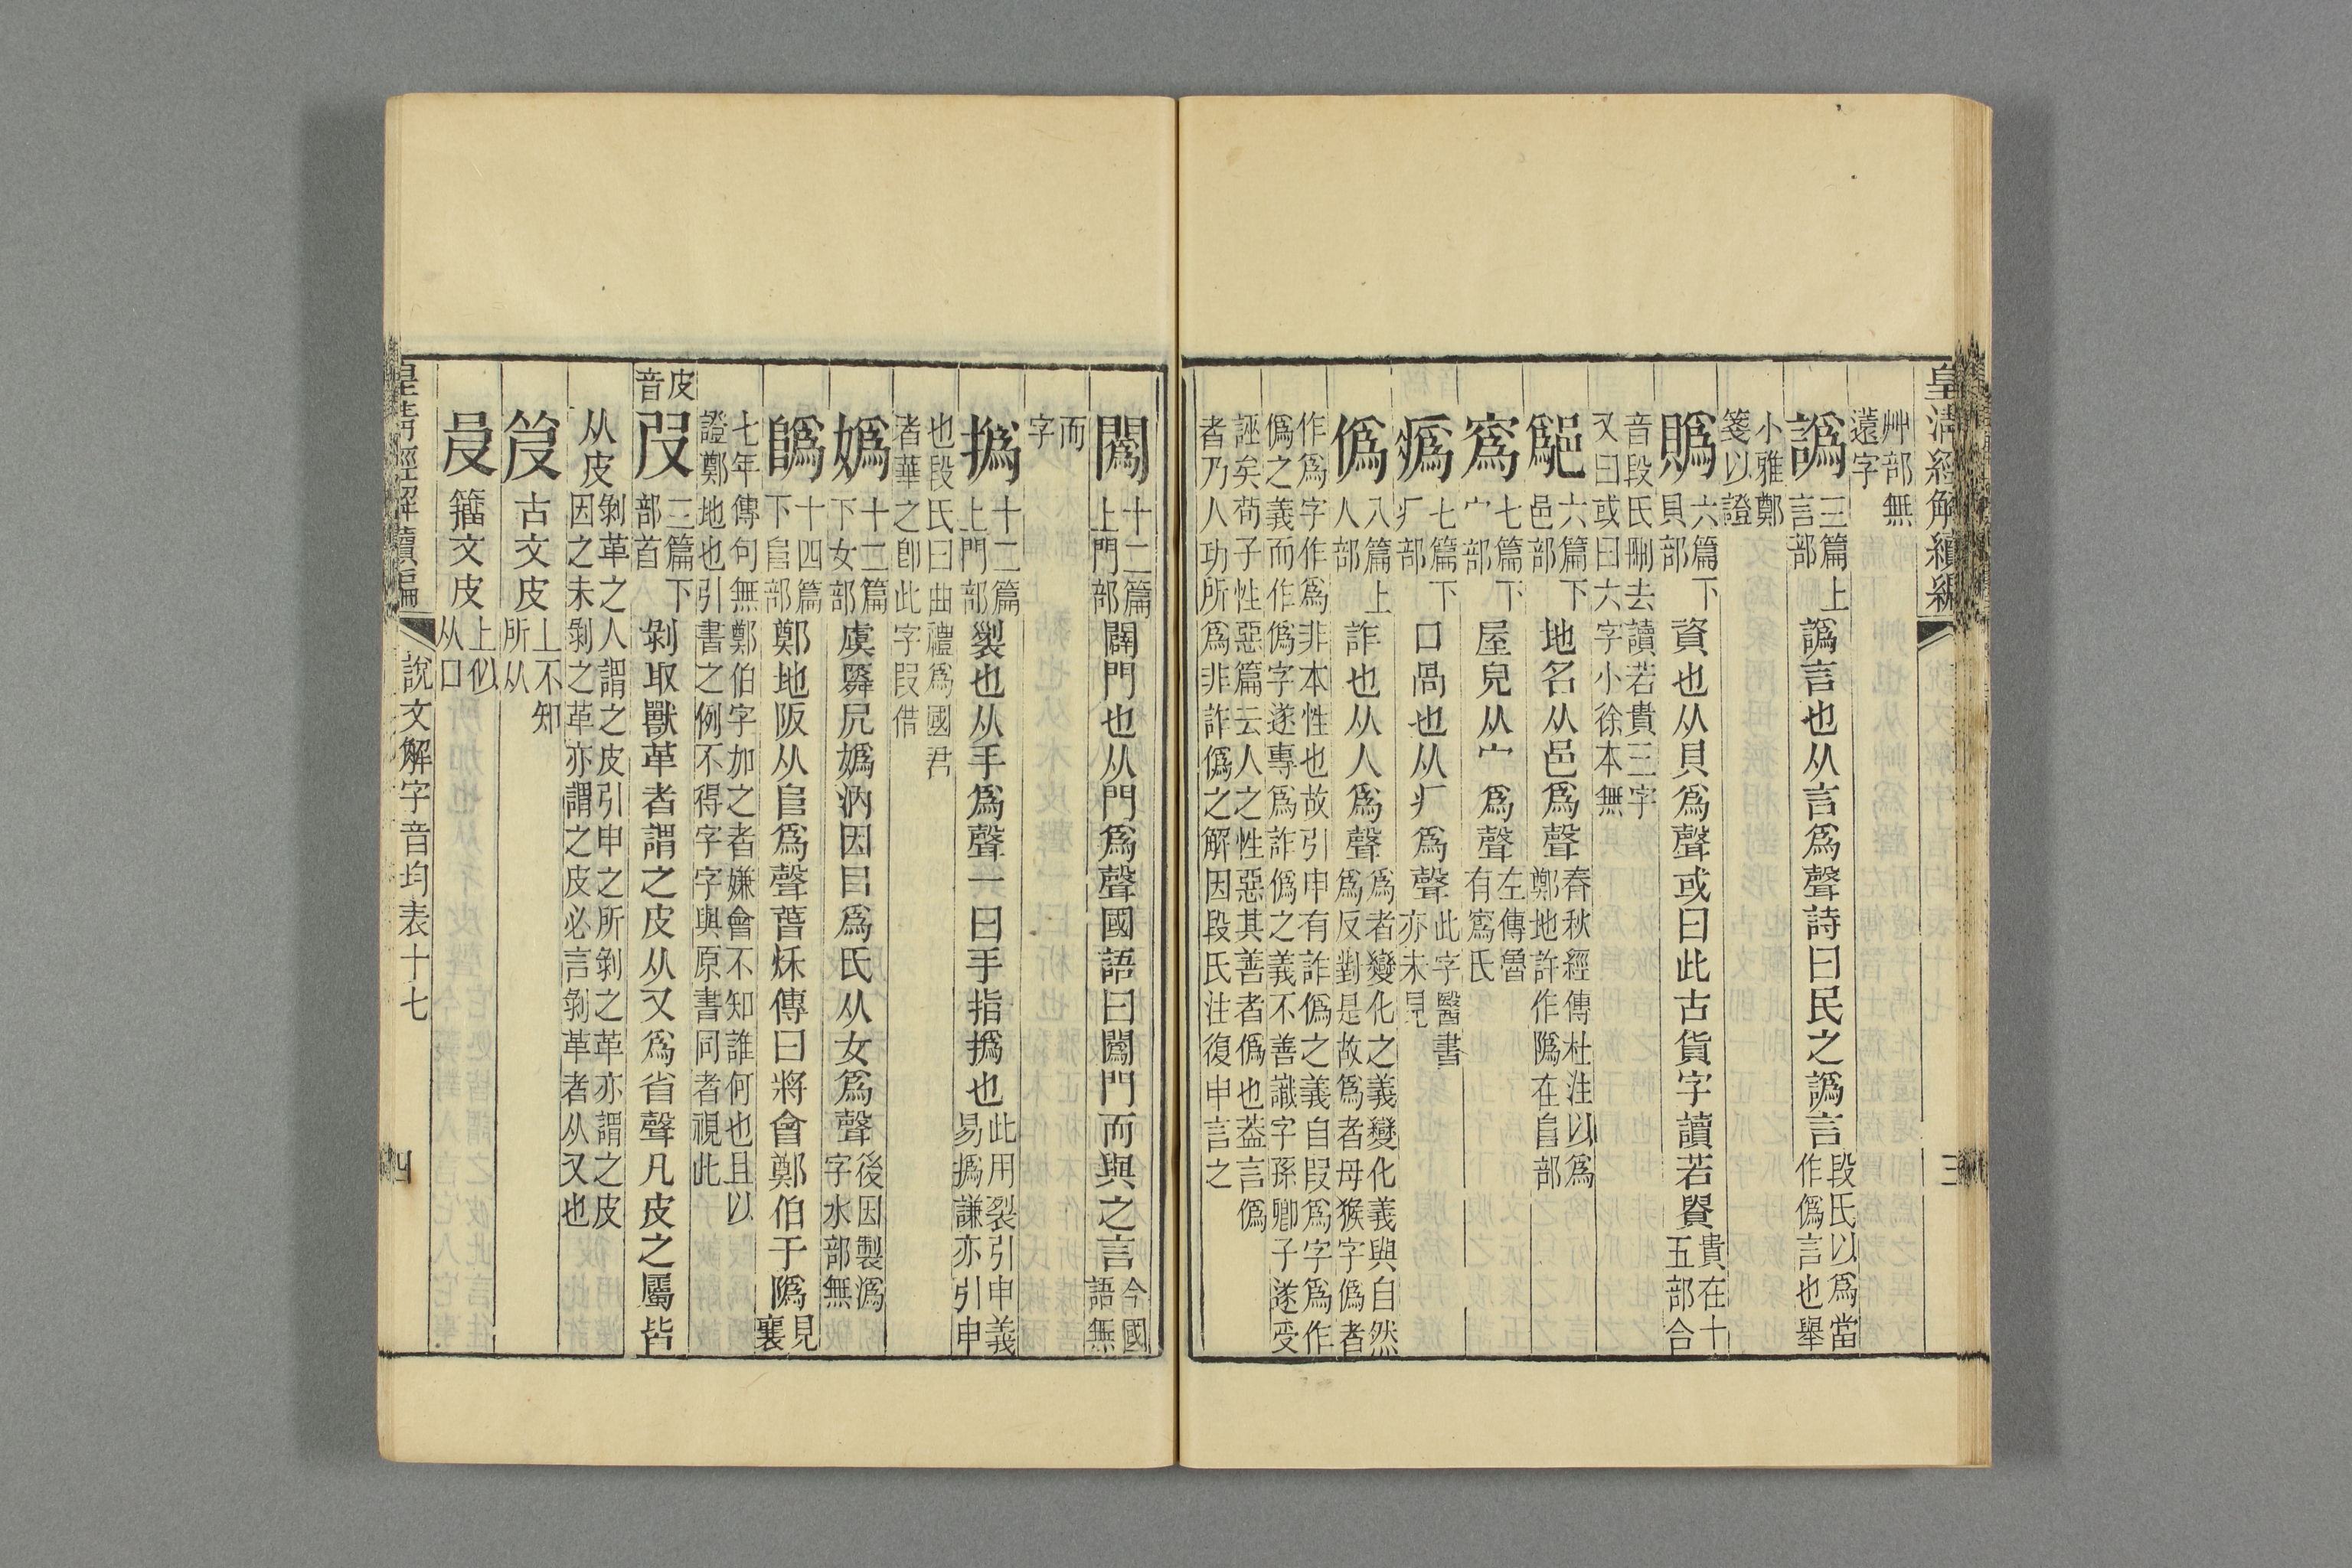 皇清經解續編
三
艸部無
薳字
譌三篇上言部譌言也从言爲聲詩曰民之譌言段氏以爲當作僞言也舉
小雅鄭
箋以證
䞈六篇下貝部資也从貝爲聲或曰此古貨字讀若貴貴在十五部合
音段氏刪去讀若貴三字
又曰或曰六字小徐本無
鄬六篇下邑部地名从邑爲聲春秋經傳杜注以爲鄭地許作隖在𨸏部
寪七篇下宀部屋皃从宀爲聲左傳魯有寪氏
𤸁七篇下疒部口咼也从疒爲聲此字醫書亦未見
僞八篇上人部詐也从人爲聲爲者變化之義變化義與自然爲反對是故爲者母猴字僞者
作爲字作爲非本性也故引申有詐僞之義自叚爲字爲作
僞之義而作僞字遂專爲詐僞之義不善讀字孫卿子遂受
誣矣荀子性惡篇云人之性惡其善者僞也蓋言僞
者乃人功所爲非詐僞之解因段氏注復申言之
闟十二篇上門部闢門也从門爲聲國語曰闟門而與之言今國語無
而
字
撝十二篇上門部䘣也从手爲聲一曰手指撝也此用裂引申義易撝謙亦引申
也段氏曰曲禮爲國君
者華之卽此字叚借
嬀十二篇下女部虞舜凥嬀汭因目爲氏从女爲聲後因製潙字水部無
隖十四篇下𨸏部鄭地阪从𨸏爲聲萅秌傳曰將會鄭伯于隖見襄
七年傳句無鄭伯字加之者嫌會不知誰何也且以
證鄭地也引書之例不得字字與原書同者視此
皮音
皮三篇下部首剝取獸革者謂之皮从又爲省聲凡皮之屬皆
从皮剝革之人謂之皮引申之所剝之革亦謂之皮因之未剝之革亦謂之皮必言剝革者从又也
笈古文皮上不知所从
𠭫籒文皮上似从口
皇清經解續編
說文解字音均表十七
四